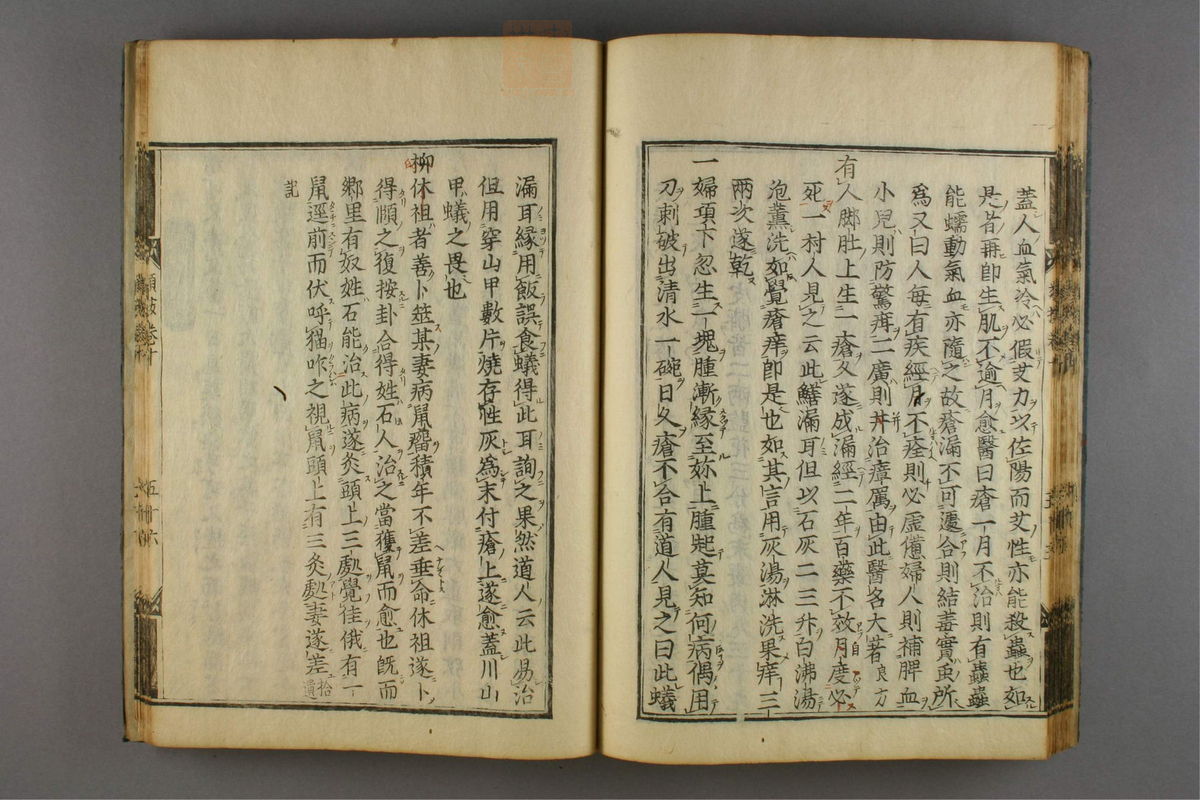 蓋人血氣冷必假艾力以佐陽而艾性亦能殺蟲也如
是者再卽生肌不逾月愈醫曰瘡一月不治則有蟲蟲
能蠕動氣血亦隨之故瘡漏不可遽合則結毒實虫所
爲又曰人每有疾經月不痊則必虛憊婦人則補脾血
小兒則防驚疳二廣則并治瘴厲由此醫名大著良方
有人脚肚上生一瘡久遂成漏經二年百藥不效自度必
死一村人見之云此鱔漏耳但以石灰二三升白沸湯
泡薰洗如覺瘡痒卽是也如其言用灰湯淋洗果痒三
兩次遂乾
一婦項下忽生一塊腫漸緣至妳上腫起莫知何病偶用
刀刺破出清水一碗日久瘡不合有道人見之曰此蟻
漏耳緣用飯誤食蟻得此耳詢之果然道人云此易治
但用穿山甲數片燒存性灰爲末付瘡上遂愈蓋川山
甲蟻之畏也
柳休祖者善卜筮其妻病鼠瘤積年不差垂命休祖遂卜
得頤之復按卦合得姓石人治之當獲鼠而愈也既而
鄕里有奴姓石能治此病遂灸頭上三處覺佳俄有一
鼠逕前而伏呼猫咋之視鼠頭上有三灸處妻遂差拾遺
記